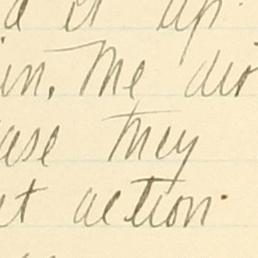 it up
in. The
ase they
et action